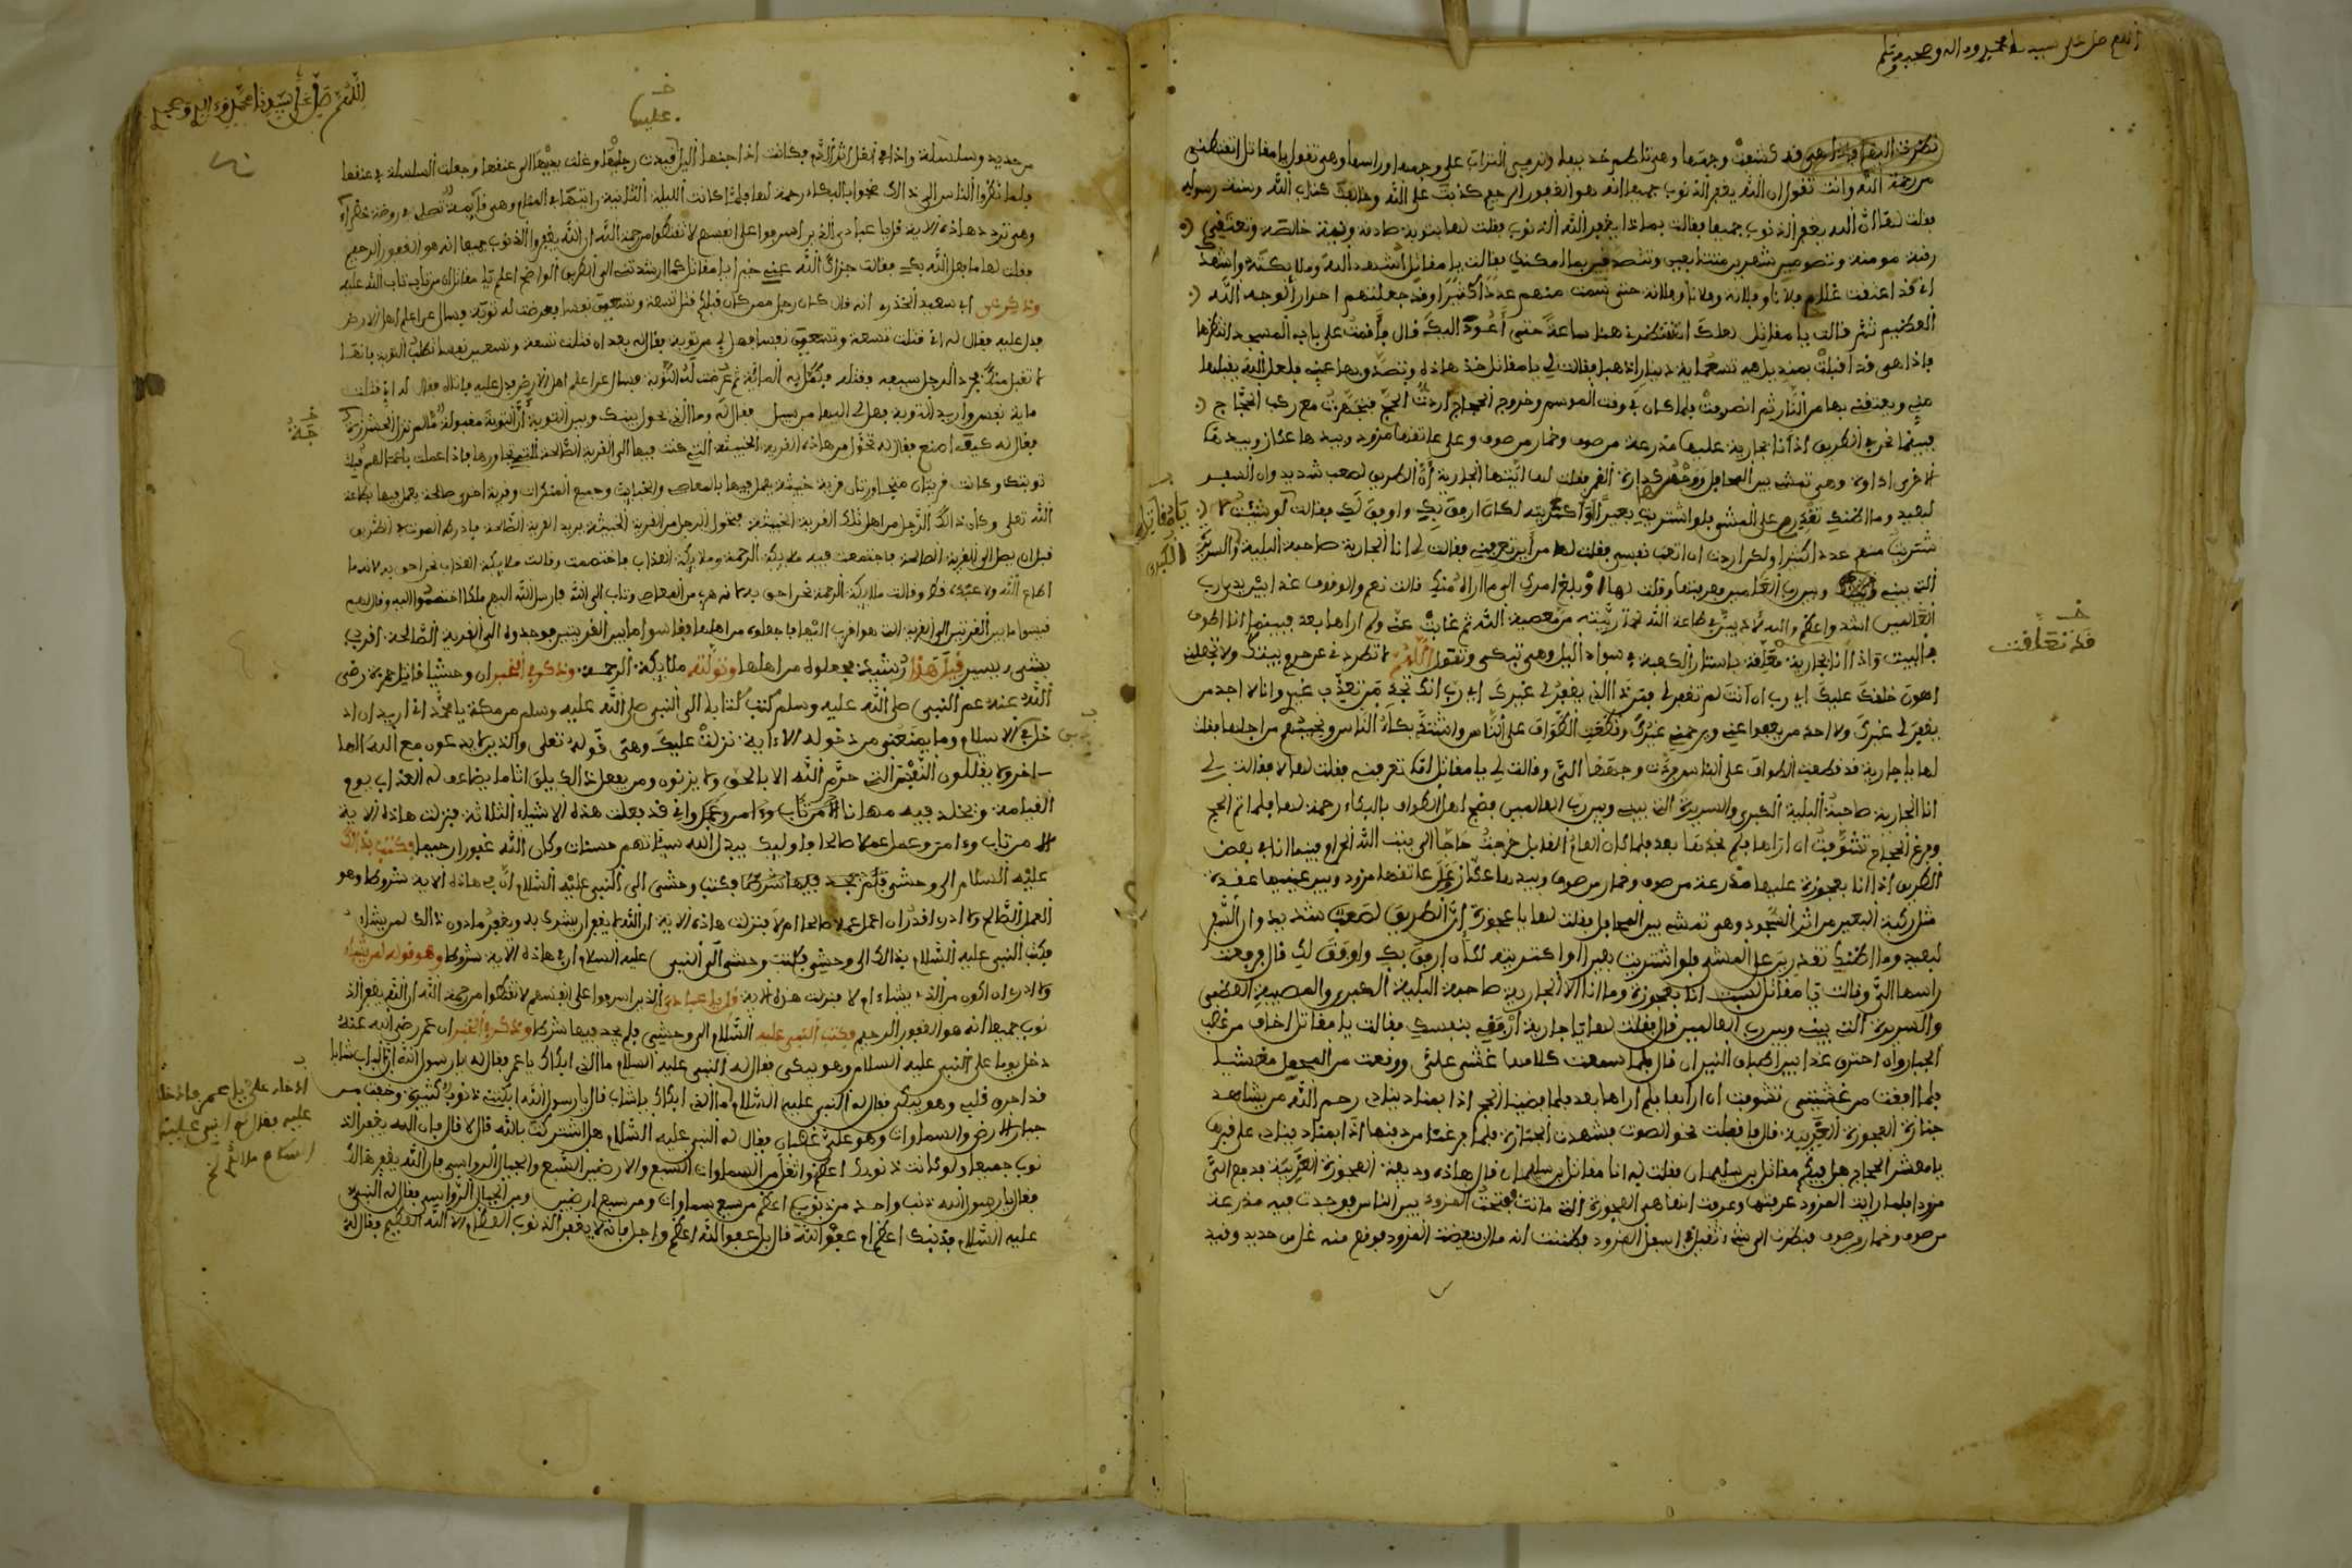 اللهم صل على سيدنا محمد وءاله وصحبه وسلم
نظرت اليها فاذا هي قد كشفت وجهها وهي تلطم خديها وترمي التراب على وجهها وراسها وهي تقول يا مقاتل اتقنطني
من رحمة الله وانت تقول ان الله يغفر الذنوب جميعا انه هو الغفور الرحيم كذبت على الله وخالفت كتاب الله وسنة رسوله
فقلت لها ان الله يغفر الذنوب جميعا فقالت بماذا يغفر الله الذنوب فقلت لها بتوبة صادقة ونية خالصة وتعتقي
رقبة مومنة وتصومين شهرين متتابعين وتتصدقين بما امكنك فقالت يا مقاتل اشهد الله وملائكته واشهدك
اني قد اعتقت غلامي فلانا وفلانة وفلانا وفلانة حتى سمت منهم عددا كثيرا وقد جعلتهم احرارا لوجه الله
العظيم ثم قالت يا مقاتل لعلك تنتظرني هنا ساعة حتى أعود اليك قال فأقمت على باب المسجد انتظرها
فاذا هي قد اقبلت بمنديل فيه تسعماية دينارا ذهبا فقالت لي يا مقاتل خذ هاذه وتصدق بها عني فلعل الله يقبلها
مني ويعتقني بها من النار ثم انصرفت فلما كان في وقت الموسم وخروج الحجاج أردت الحج فتجهزت مع ركب الحجاج
فبينما نحن في الطريق اذ أنا بجارية عليها مدرعة من صوف وخمار من صوف وعلى عاتقها مزود وبيدها عكاز وبيدها
الاخرى اداوة وهي تمشي بين المحامل ووجهها كدارة القمر فقلت لها ايتها الجارية إن الطريق لصعب شديد وان السفر
لبعيد وما اظنك تقدرين على المشي فلو اشتريت بعيرا أو اكتريته لكان ارفق بك واوفق لك فقالت لو شئت لا
يا مقاتل
شتريت منهم عددا كثيرا ولكن اردت ان اتعب نفسي فقلت لها من أين تعرفيني فقالت لي انا الجارية صاحبة البلية والسريرة
الكبرى
التي بيني وبين رب العالمين فعرفتها وقلت لها أو بلغ امرك الى ما ارى منك قالت نعم والوقوف غدا بين يدي رب
العالمين اشد واعظم والله لاذيبن في طاعة الله ما ربيته من معصية الله ثم غابت عني ولم اراها بعد فبينما انا اطوف
قد تعلقت
بالبيت واذا انا بجارية متعلقة باستار الكعبة في سواد اليل وهي تبكي وتقول اللهم لا تطردني عن حرم بيتك ولا تجعلني
اهون خلقك عليك اي رب ان أنت لم تغفر لي فمن ذا الذي يغفر لي غيرك اي رب انك تجد من تعذب غيري وانا لا اجد من
يغفر لي غيرك ولا احد من يعفوا عني ويرحمني غيرك وقطعت الطواف على الناس واشتد بكاء الناس ونحيبهم من اجلها فقلت
لها يا جارية قد قطعت الطواف على الناس فردت وجهها الي وقالت لي يا مقاتل اما تعرفني فقلت لها لا فقالت لي
انا الجارية صاحبة البلية الكبرى والسريرة التي بيني وبين رب العالمين فضج اهل الطواف بالبكاء رحمة لها فلما تم الحج
وفرغ الحجاج تشوقت ان اراها فلم نجدها بعد فلما كان العام القابل خرجت حاجا الى بيت الله الحرام فبينما انا في بعض
الطريق اذا انا بعجوزة عليها مدرعة من صوف وخمار من صوف وبيدها عكاز وعلى عاتقها مزود وبين عينيها عقدة
مثل ركبة البعير من اثر السجود وهي تمشي بين المحامل فقلت لها يا عجوزة إن الطريق لصعب شديد وان السفر
لبعيد وما اظنك تقدرين على المشي فلو اشتريت بعيرا او اكتريته لكان ارفق بك واوفق لك قال فرفعت
راسها الي وقالت يا مقاتل لست انا بعجوزة وما انا الا الجارية صاحبة البلية الكبرى والمصيبة العظمى
والسريرة التي بيني وبين رب العالمين قال فقلت لها يا جارية أرفقي بنفسك فقالت يا مقاتل اخاف من غضب
الجبار وان احترق غدا بين اطباق النيران قال فلما سمعت كلامها غشي علي ووقعت من المحمل مغشيا
فلما افقت من غشيتي تشوقت ان اراها فلم اراها بعد فلما قضينا الحج اذا بمناد ينادي رحم الله من يشاهد
جنازة العجوزة الغريبة قال فاقبلت نحو الصوت فشهدت الجنازة فلما فرغنا من دفنها اذا بمناد ينادي على قبرها
يا معشر الحجاج هل فيكم مقاتل بن سليمان فقلت له انا مقاتل بن سليمان قال هاذه وديعة العجوزة الغريبة فدفع الي
مزودا فلما رايت المزود عرفتها وعرفت انها هي العجوزة التي ماتت ففتحت المزود بين الناس فوجدت فيه مدرعة
من صوف وخمار من صوف فنظرت الى شيء ثقيل في اسفل المزود فظننت انه مال فنفضت المزود فوقع منه غل من حديد وقيد
اللهم صل على سيدنا محمد وءاله وصحبه
عليها
من حديد وسلسلة واذا في الغل اثر الدم فكانت اذا جنها اليل قيدت رجليها وغلت يديها الى عنقها وجعلت السلسلة في عنقها
فلما نظروا الناس الى ذالك ضجوا بالبكاء رحمة لها فلما كانت الليلة الثانية رايتها في المنام وهي قائمة تصلي في روضة خضراء
وهي تردد هاذه الاية قل يا عبادي الذين اسرفوا على انفسهم لا تقنطوا من رحمة الله ان الله يغفر الذنوب جميعا انه هو الغفور الرحيم
فقلت لها ما فعل الله بك فقالت جزاك الله عني خيرا يا مقاتل كما ارشدتني الى الطريق الواضح اعلم يا مقاتل ان من تاب تاب الله عليه
وذكر عن ابي سعيد الخدري انه قال كان رجل ممن كان قبلكم قتل تسعة وتسعين نفسا فعرضت له توبة فسال عن اعلم اهل الارض
فدل عليه فقال له اني قتلت تسعة وتسعين نفسا فهل لي من توبة فقال له بعد ان قتلت تسعة وتسعين نفسا تطلب التوبة فانها
لا تقبل منك فجرد الرجل سيفه وقتله فكمل به المائة ثم عرضت له التوبة فسال عن اعلم اهل الارض فدل عليه فاتاه فقال له اني قتلت
ماية نفس واريد التوبة فهل لي اليها من سبيل فقال له وما الذي يحول بينك وبين التوبة إن التوبة مقبولة
فقال له كيف اصنع فقال له تحول من هاذه القرية الخبيثة التي كنت فيها الى القرية الصالحة التي تجاورها فاذا عملت باعمالهم
توبتك وكانت قريتان متجاورتان قرية خبيثة يعمل فيها بالمعاصي والخبايث وجميع المنكرات وقرية اخرى صالحة يعمل فيها بطاعة
الله تعلى وكان ذالك الرجل من اهل تلك القرية الخبيثة فتحول الرجل من القرية الخبيثة يريد القرية الصالحة فادركه الموت في الطريق
قبل ان يصل الى القرية الصالحة فاجتمعت فيه ملايكة الرحمة وملايكة العذاب فاختصمت وقالت ملايكة العذاب نحن احق به لانه ما
اطاع الله ولا عبده قط وقالت ملايكة الرحمة نحن احق به لانه هرب من المعاصي وتاب الى الله فارسل الله اليهم ملكا اختصموا اليه وقال لهم
قيسوا ما بين القريتين الى القرية التي هو اقرب اليها فاجعلوه من اهلها فقاسوا ما بين القريتين فوجدوه الى القرية الصالحة اقرب
بشيء يسير قيل هذا شبر فجعلوه من اهلها وتولته ملايكة الرحمة وذكر في الخبر ان وحشيا قاتل حمزة رضي
الله عنه عم النبي صلى الله عليه وسلم كتب كتابا الى النبي صلى الله عليه وسلم من مكة يا محمد اني اريد ان اد
خل في الاسلام وما يمنعني من دخوله الا ءاية نزلت عليك وهي قوله تعلى والذين لا يدعون مع الله الها
ـاخر ولا يقتلون النفس التي حرم الله الا بالحق ولا يزنون ومن يفعل ذالك يلق اثاما يضاعف له العذاب يوم
القيامة ويخلد فيه مهانا الا من تاب وءامن وعمل واني قد فعلت هذه الاشياء الثلاثة فنزلت هاذه الاية
الا من تاب وءامن وعمل عملا صالحا فاوليك يبدل الله سيئاتهم حسنات وكان الله غفورا رحيما فكتب بذالك
عليه السلام الى وحشي فلم يجد فيها شرطا فكتب وحشي الى النبي عليه السلام ان في هاذه الاية شروطا وهو
العمل الصالح ولا ادري اقدر ان اعمل عملا صالحا ام لا فنزلت هاذه الاية ان الله لا يغفر ان يشرك به ويغفر ما دون ذالك لمن يشاء
فكتب النبي عليه السلام بذالك الى وحشي فكتب وحشي الى النبي عليه السلام ان في هاذه الاية شروطا وهو قوله لمن يشاء
ولا ادري ان اكون من الذي يشاء ام لا فنزلت هذه الاية قل يا عبادي الذين اسرفوا على انفسهم لا تقنطوا من رحمة الله ان الله يغفر الذ
نوب جميعا انه هو الغفور الرحيم فكتب النبي عليه السلام الى وحشي فلم يجد فيها شرطا وذكر في الخبر ان عمر رضي الله عنه
دخل يوما على النبي عليه السلام وهو يبكي فقال له النبي عليه السلام ما الذي ابكاك يا عمر فقال له يا رسول الله ان بالباب شابا
ادخله علي يا عمر فادخله
قد احرق قلبي وهو يبكي فقال له النبي عليه السلام ما الذي ابكاك يا شاب قال يا رسول الله ابكتني ذنوب كثيرة وخفت من
عليه فقال له النبي عليه
جبار الارض والسماوات وهو علي غضبان فقال له النبي عليه السلام هل اشتركت بالله قال لا قال فان الله يغفر الذ
السلام
نوب جميعا ولو كانت ذنوبك اعظم واثقل من السماوات السبع والارضين السبع والجبال الرواسي فان الله يغفر ذالك
فقال يا رسول الله ذنب واحد من ذنوبي اعظم من سبع سماوات ومن سبع ارضين ومن الجبال الرواسي فقال له النبي
عليه السلام فذنبك اعظم ام عفو الله قال بل عفو الله اعظم واجل فانه لا يغفر الذنوب العظام الا الله العظيم فقال له